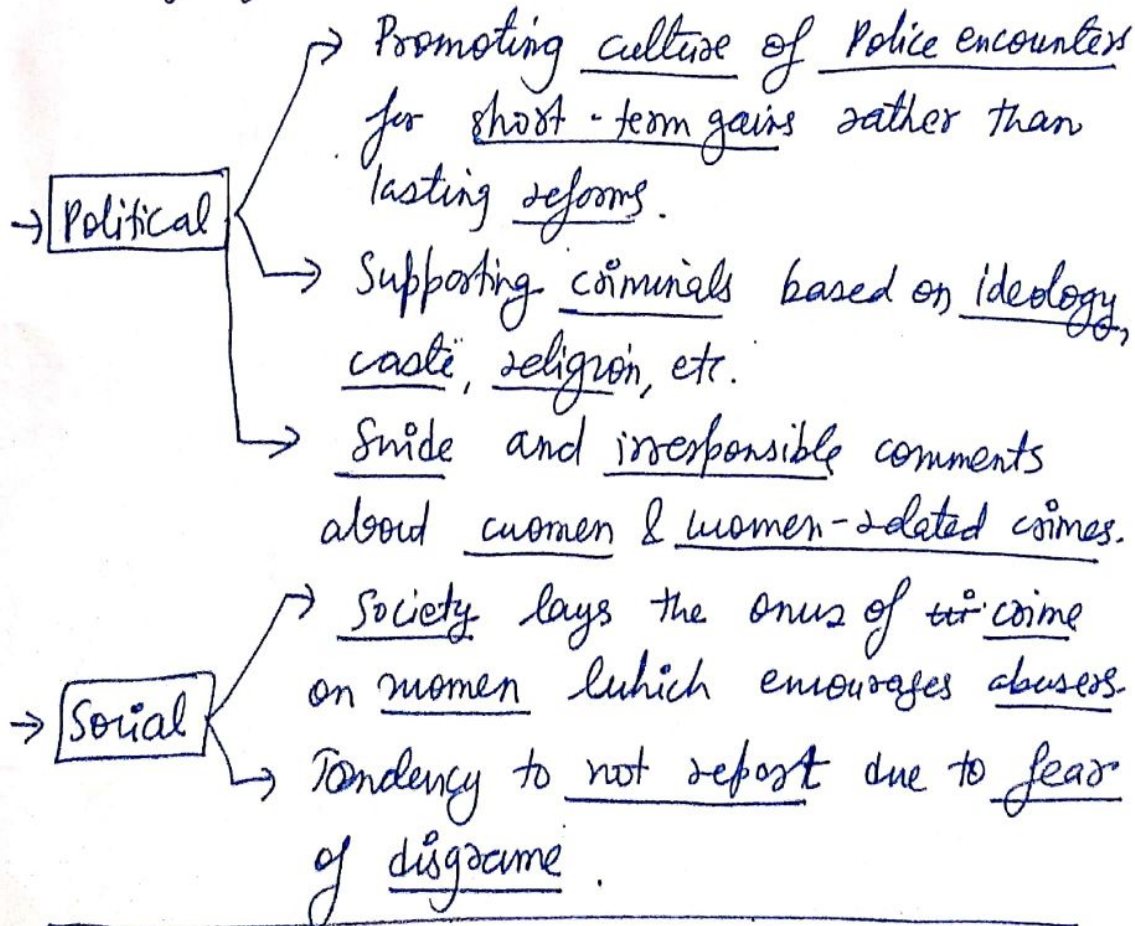 → Promoting culture of Police encounters
for short-term gains rather than
lasting reforms.
→ Political
→ Supporting criminals based on ideology,
caste, religion, etc.
→ Snide and irresponsible comments
about women & women-related crimes.
→ Society lays the onus of crime
on women which encourages abusers.
→ Social
→ Tendency to not report due to fear
of disgrace.